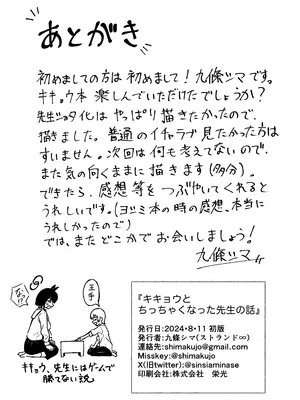 あとがき
初めましての方は初めまして！九條シマです。
キキョウ本楽しんでいただけたでしょうか？
先生ショタ化はやっぱり描きたかったので、
描きました。普通のイチャラブ見たかった方は
すいません。次回は何も考えてないので、
また気の向くままに描きます(多分)。
できたら、感想等をつぶやいてくれると
うれしいです。(ヨツミ本の時の感想、本当に
うれしかったので)
では、またどこかでお会いしましょう！
九條シマ
なっ!?
王手
キキョウ、先生にはゲームで
勝てない説
『キキョウと
ちっちゃくなった先生の話』
発行日:2024・8・11 初版
発行者:九條シマ(ストランド∞)
連絡先:shimakujo@gmail.com
Misskey:@shimakujo
X(旧twitter):@sinsiaminase
印刷会社:株式会社　栄光